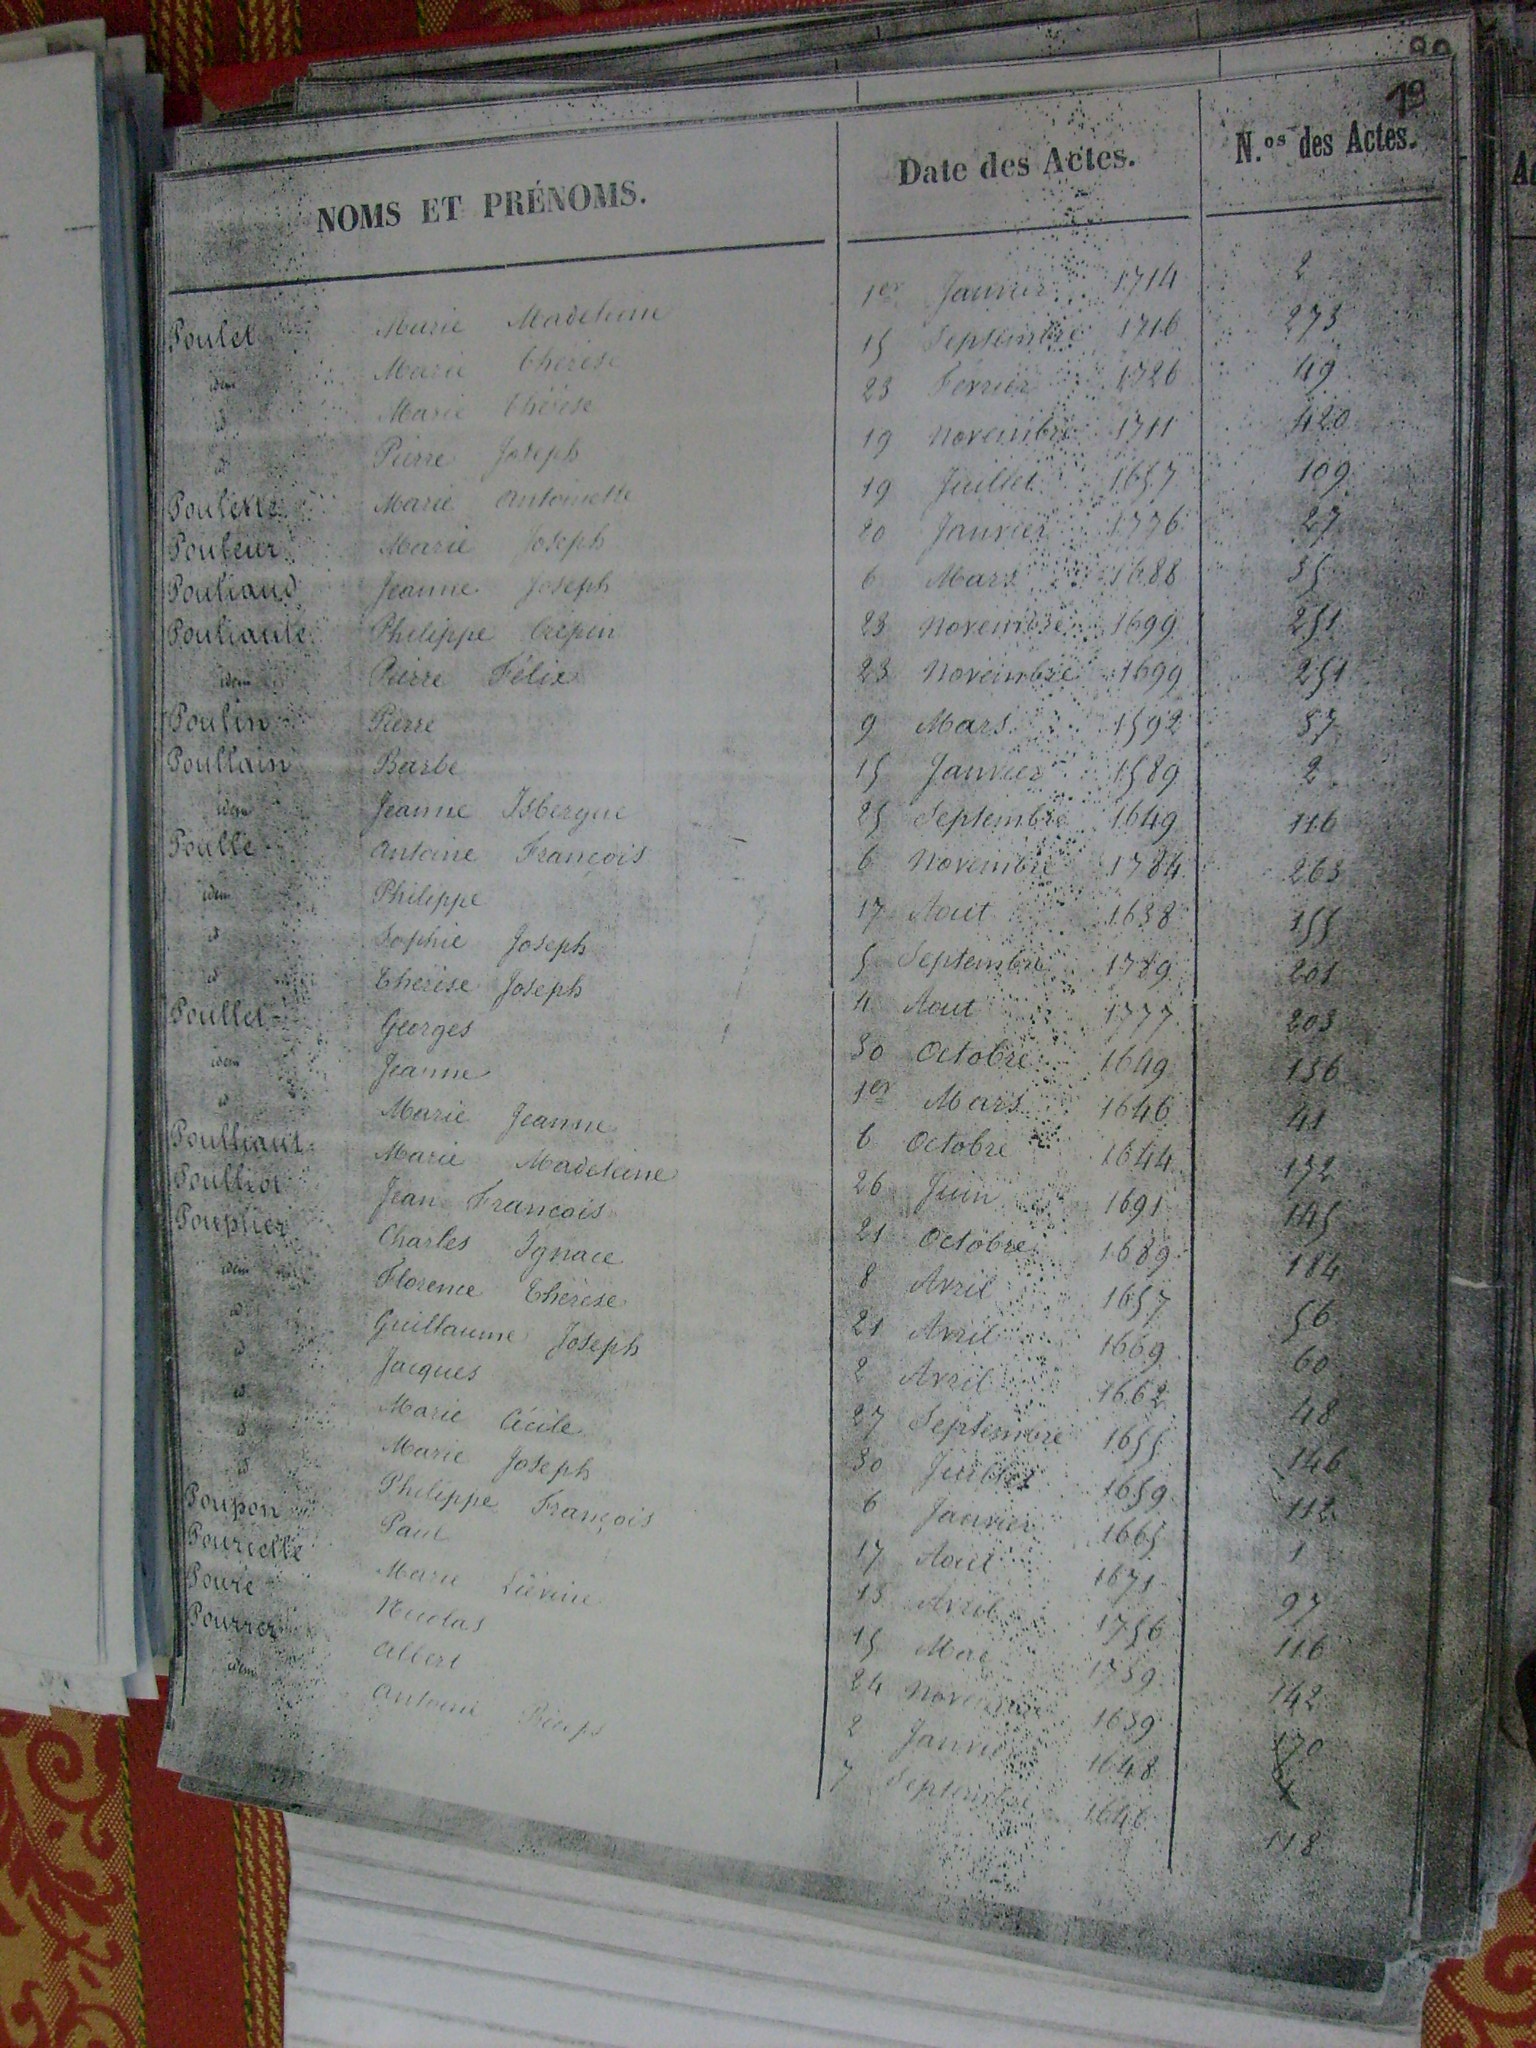 19
NOMS ET PRÉNOMS. Date des Actes. N.os des Actes.
Poulet Marie Madeleine 1er Janvier 1714 2
idem Marie Thérèse 15 Septembre 1716 273
id Marie Thérèse 23 Février 1726 49
id Pierre Joseph 19 Novembre 1711 420
Poulette Marie Antoinette 19 Juillet 1657 109
Pouleur Marie Joseph 20 Janvier 1776 27
Pouliaud Jeanne Joseph 6 Mars 1688 55
Pouliaule Philippe Crépin 23 Novembre 1699 251
idem Pierre Félix 23 Novembre 1699 251
Poulin Pierre 9 Mars 1592 37
Poullain Barbe 15 Janvier 1589 2
idem Jeanne Isbergue 25 Septembre 1649 116
Poulle Antoine François 6 Novembre 1784 263
idem Philippe 17 Aout 1638 155
id Sophie Joseph 5 Septembre 1789 201
id Thérèse Joseph 4 Aout 1777 203
Poullet Georges 30 Octobre 1649 136
idem Jeanne 1er Mars 1646 41
id Marie Jeanne 6 Octobre 1644 172
Poulliaut Marie Madeleine 26 Juin 1691 145
Poulliot Jean François 21 Octobre 1689 184
Pouplier Charles Ignace 8 Avril 1657 56
idem Florence Thérèse 21 Avril 1669 60
id Guillaume Joseph 2 Avril 1662 48
id Jacques 27 Septembre 1655 146
id Marie Cécile 30 Juillet 1659 112
id Marie Joseph 6 Janvier 1665 1
id Philippe François 17 Aout 1671 97
Poupon Paul 13 Avril 1756 116
Pourielle Marie Liévine 15 Mai 1739 142
Pouré Nicolas 24 Novembre 1639 170
Pourrez Albert 2 Janvier 1648
idem Antoine 7 Septembre 1646 118